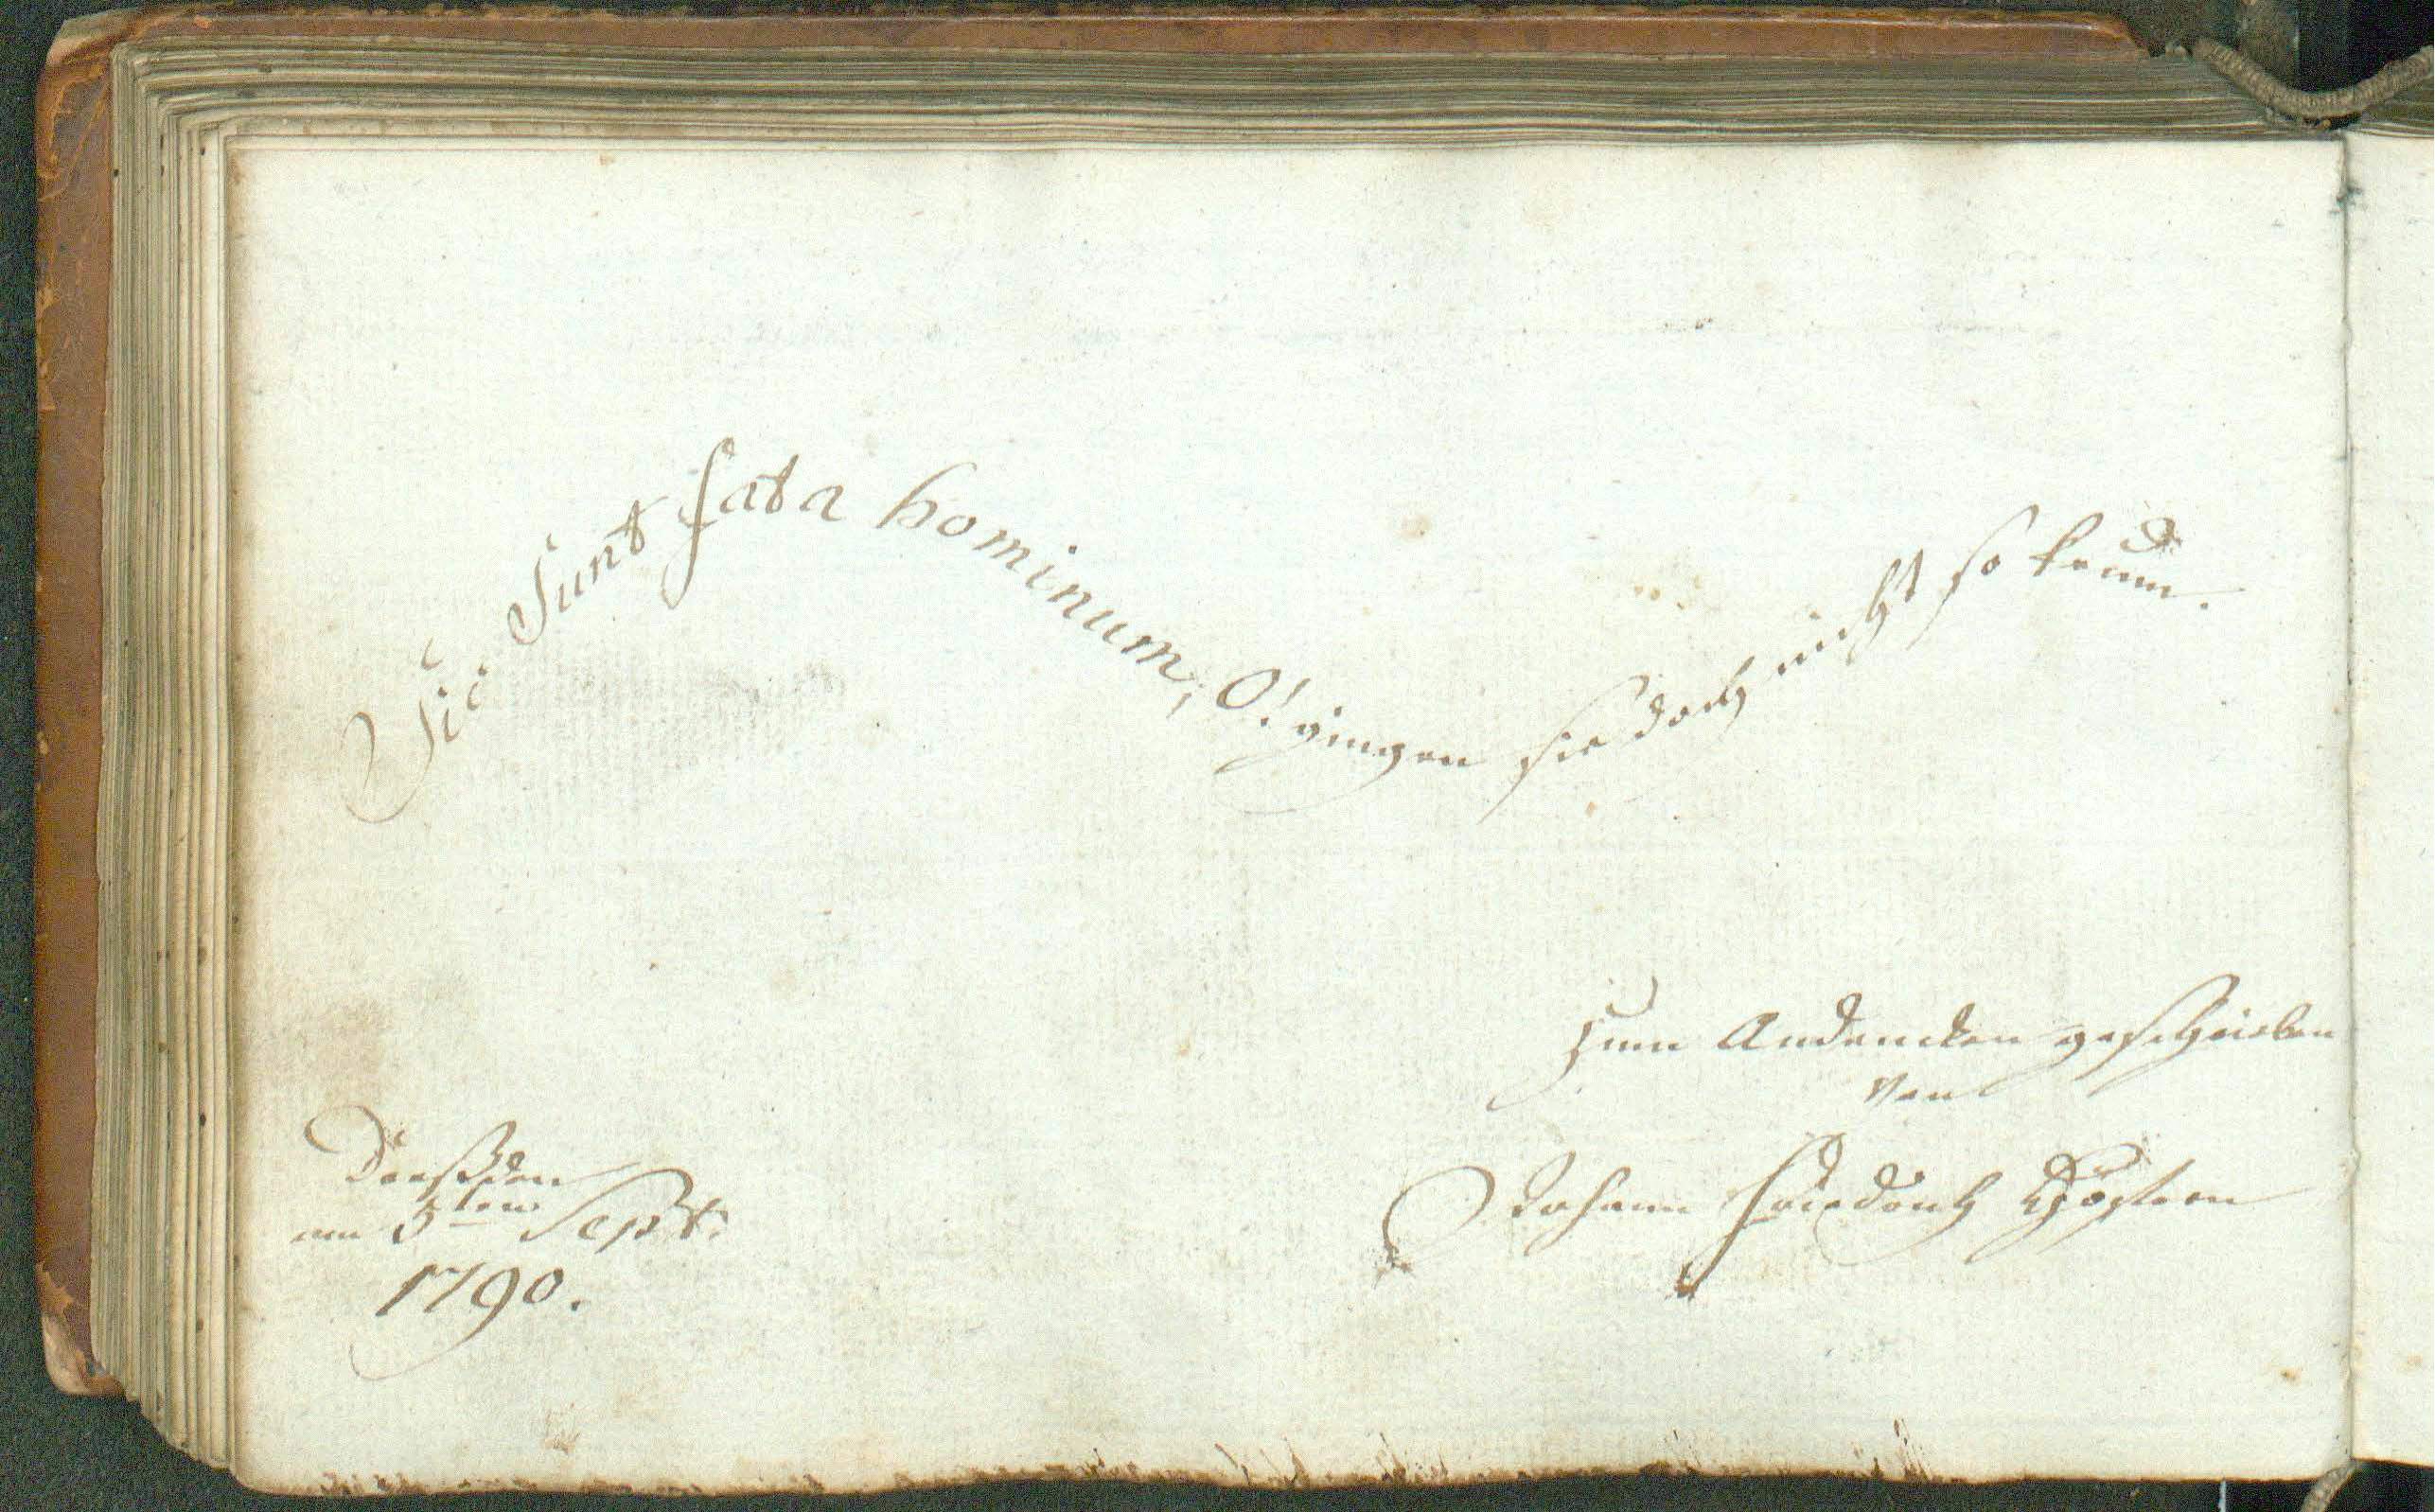 Sic Sunt fata hominum, O! gingen sie doch nicht so krum.
Zum Andencken geschrieben
von
Johann Friedrich
Dreßden
am 5ten Sept:
1790.